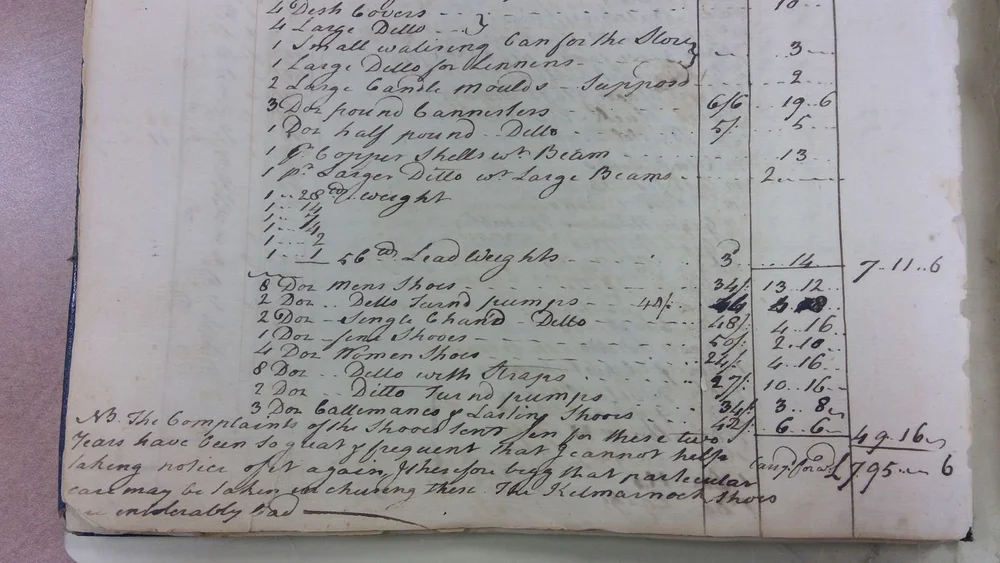 4 Dish Covers 10
4 Large Ditto
1 Small watering Can for the Store 3
1 Large Ditto for Linnens
2 Large Candle Moulds Suppos'd 2
3 Doz pound Cannisters 6/6 19 6
1 Doz half pound Ditto 5/. 5
1 pr Copper Shells wt Beam 13
1 pr Larger Ditto wt Large Beams 2
1 .. 28 weight
1 .. 14
1 .. 7
1 .. 4
1 .. 2
1 .. 1
56 Lead Weights 3 14 7 .. 11 .. 6
8 Doz Mens Shoes 34/. 13 .. 12
2 Doz Ditto Turnd pumps 48/. 4
2 Doz Single Chand Ditto 48/. 4 .. 16
1 Doz fine Shooes 50/. 2 .. 10
4 Doz Women Shoes 24/. 4 .. 16
8 Doz Ditto with Straps 27/. 10 .. 16
2 Doz Ditto Turnd pumps 34/. 3 .. 8
3 Doz Callemanco & Lasting Shooes 42/. 6 .. 6 49 .. 16
NB. The Complaints of the Shooes sent in for these two
Years have been so great & frequent that I cannot help
taking notice of it again, & therefore begg that particular Carrd forwd £795 6
care may be taken in chusing these. The Kilmarnock Shoes
are intolerably bad